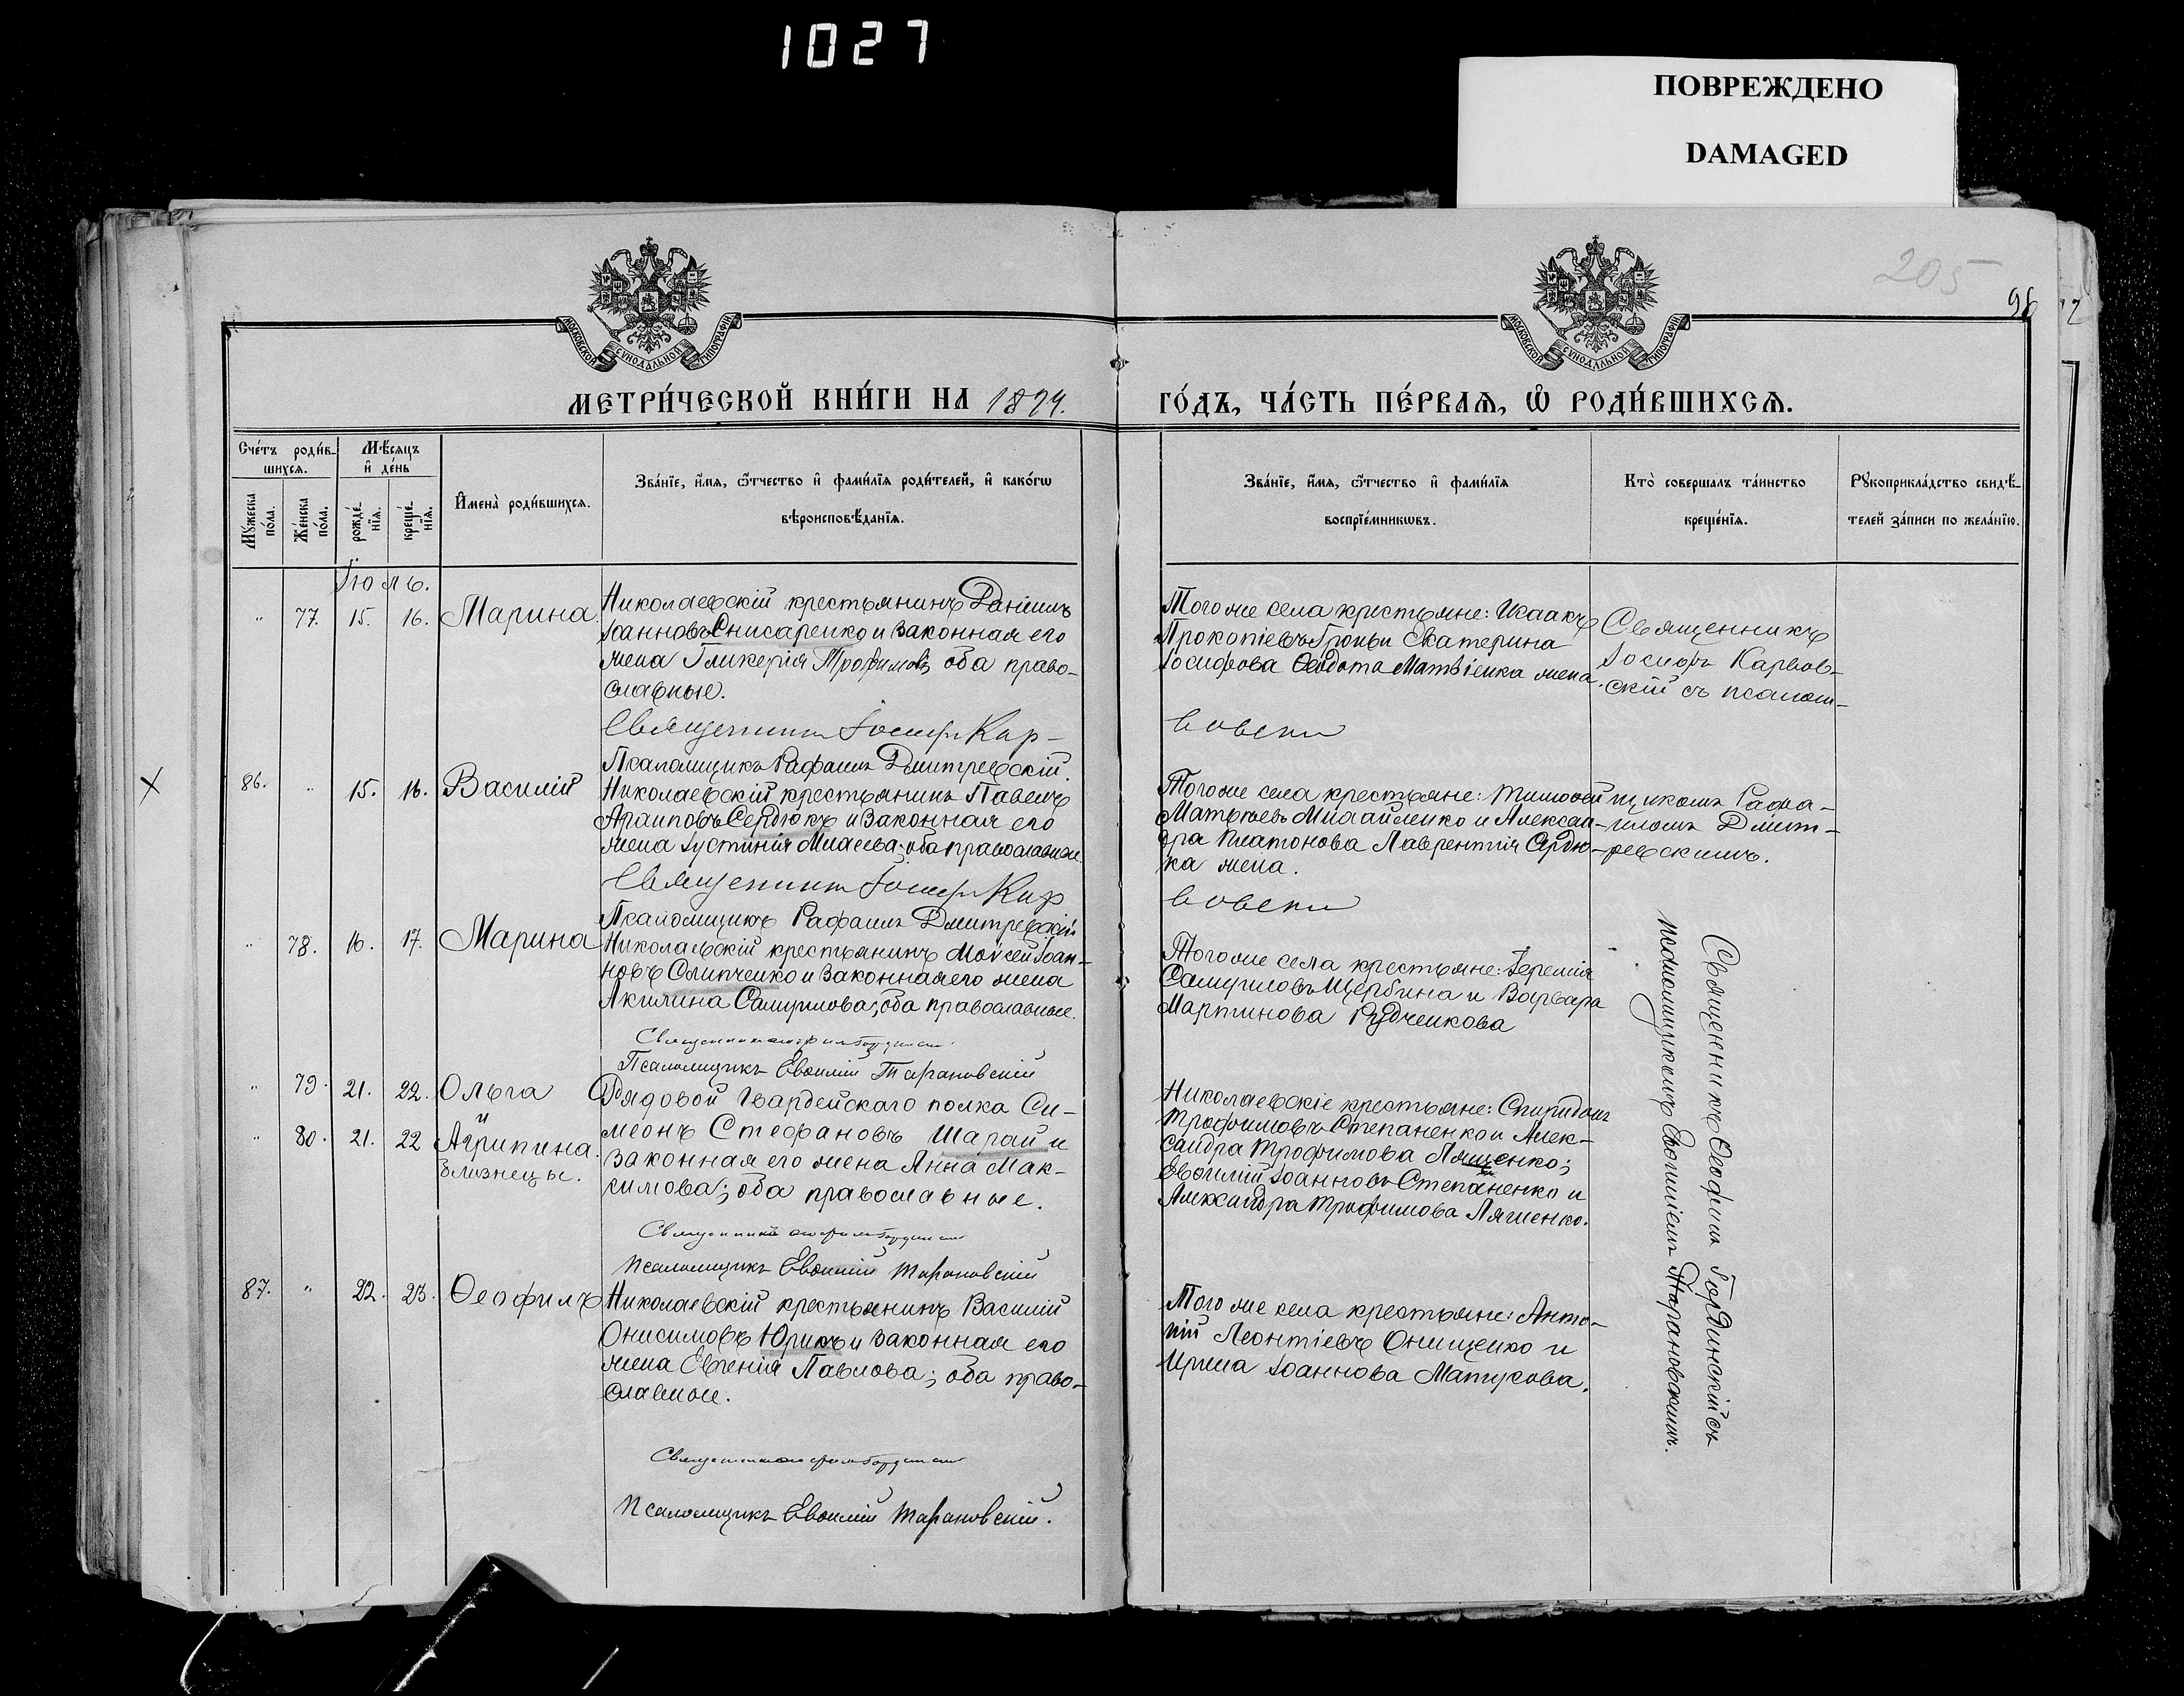 1027
ПОВРЕЖДЕНО
DAMAGED
205
96
МОСКОВСКОЙ СУНОДАЛЬНОЙ ТИПОГРАФІИ
МОСКОВСКОЙ СУНОДАЛЬНОЙ ТИПОГРАФІИ
МЕТРИ́ЧЕСКОЙ КНИ́ГИ НА 1894.
ГО́ДЪ, ЧА́СТЬ ПЕ́РВАЯ, Ѽ РОДИ́ВШИХСЯ.
Сче́тъ роди́в-
шихся.
Мꙋжеска по́ла.
Же́нска по́ла.
Мѣ́сяцъ
и҆ де́нь
рожде́нїя.
креще́нїя.
И҆мена̀ роди́вшихся.
Зва́нїе, и҆́мя, ѻ҆́тчество и҆ фами́лїя роди́телей, и҆ како́гѡ
вѣроисповѣ́данїя.
Зва́нїе, и҆́мя, ѻ҆́тчество и҆ фами́лїя
воспрїе́мникѡвъ.
Кто̀ соверша́лъ та́инство
креще́нїя.
Рꙋкоприкла́дство свидѣ́-
телей за́писи по жела́нїю.
Іюль.
" 77. 15. 16. Марина.
Николаевскій крестьянинъ Даніилъ
Іоанновъ Снисаренко и законная его
жена Гликерія Трофимова, оба право-
славные.
Священникъ Іосифъ Кар-
вовскій
Псаломщикъ Рафаилъ Дмитревскій.
Того же села крестьяне: Исаакъ
Прокопіевъ и Екатерина
Іосифова Ѳеодота Матвіенка жена.
Священникъ
Іосифъ Карвов-
скій съ псалом-
86. " 15. 16. Василій
Николаевскій крестьянинъ Павелъ
Агаповъ Сердюкъ и законная его
жена Іустинія оба православные.
Священникъ Іосифъ Кар
вовскій
Псаломщикъ Рафаилъ Дмитревскій
Того же села крестьяне: Тимоѳей
Матѳеевъ Михайленко и Алексан-
дра Платонова Лаврентія Сердю-
ка жена.
щикомъ Рафа-
иломъ Дмит-
ревскимъ.
" 78. 16. 17. Марина
Николаевскій крестьянинъ Моисей Іоан-
новъ Слипченко и законная его жена
Акилина Самуилова; оба православные.
Псаломщикъ Евѳимій Тарановскій
Того же села крестьяне: Іеремія
Самуиловъ Щербина и Варвара
Мартинова Рудченкова
Священникъ Ѳеофилъ Гординскій съ
псаломщикомъ Евѳиміемъ Тарановскимъ.
" 79. 21. 22. Ольга
и
" 80. 21. 22 Агрипина.
близнецы.
Рядовой Гвардейскаго полка Си-
меонъ Стефановъ Шарай и
законная его жена Анна Мак-
симова; оба православные.
Псаломщикъ Евѳимій Тарановскій
Николаевскіе крестьяне: Спиридонъ
Трофимовъ Степаненко и Алек-
сандра Трофимова Лященко;
Евѳимій Іоанновъ Степаненко и
Александра Трофимова Ляшенко.
87. " 22. 23. Ѳеофилъ
Николаевскій крестьянинъ Василій
Онисимовъ Юрикъ и законная его
жена Евгенія Павлова; оба право-
славные.
Псаломщикъ Евѳимій Тарановскій.
Того же села крестьяне: Анто-
ній Леонтіевъ Онищенко и
Ирина Іоаннова Матусова.